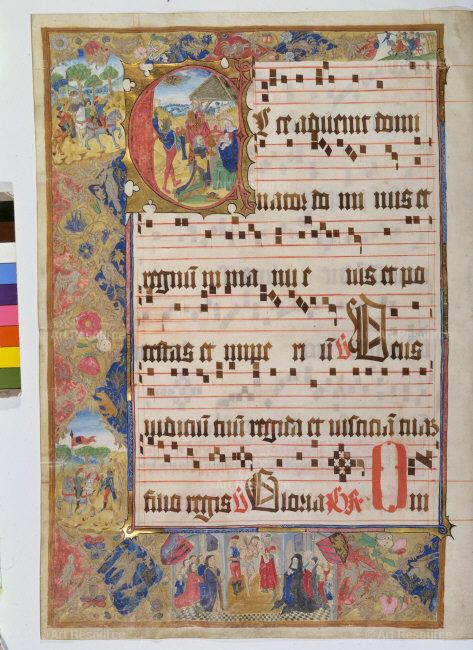 Ecce aduenit domi
nator do mi nus et
regnum in ma nu e ius et po
testas et impe ri ū V Deus
iudiciū tuū regi da et iusticiā tuā
filio regis V Gloria PR Om
Art Resource
Art Resource